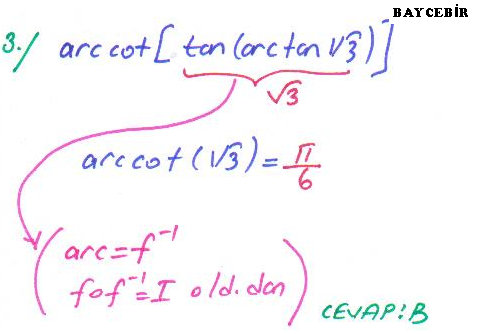 BAYCEBİR
3./ arc cot[tan(arctan√3)]
√3
arccot(√3)=π/6
(arc=f⁻¹
fof⁻¹=I old.dan)
CEVAP:B